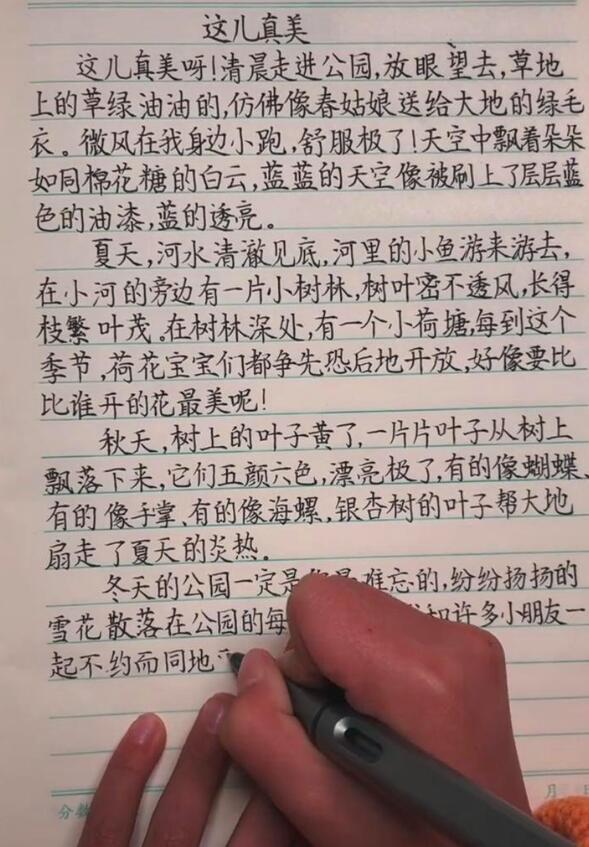 这儿真美
这儿真美呀!清晨走进公园,放眼望去,草地
上的草绿油油的,仿佛像春姑娘送给大地的绿毛
衣。微风在我身边小跑,舒服极了!天空中飘着朵朵
如同棉花糖的白云,蓝蓝的天空像被刷上了层层蓝
色的油漆,蓝的透亮。
夏天,河水清澈见底,河里的小鱼游来游去,
在小河的旁边有一片小树林,树叶密不透风,长得
枝繁叶茂。在树林深处,有一个小荷塘,每到这个
季节,荷花宝宝们都争先恐后地开放,好像要比
比谁开的花最美呢!
秋天,树上的叶子黄了,一片片叶子从树上
飘落下来,它们五颜六色,漂亮极了,有的像蝴蝶、
有的像手掌、有的像海螺,银杏树的叶子帮大地
扇走了夏天的炎热。
冬天的公园一定是 难忘的,纷纷扬扬的
雪花散落在公园的每 和许多小朋友一
起不约而同地
分数
月